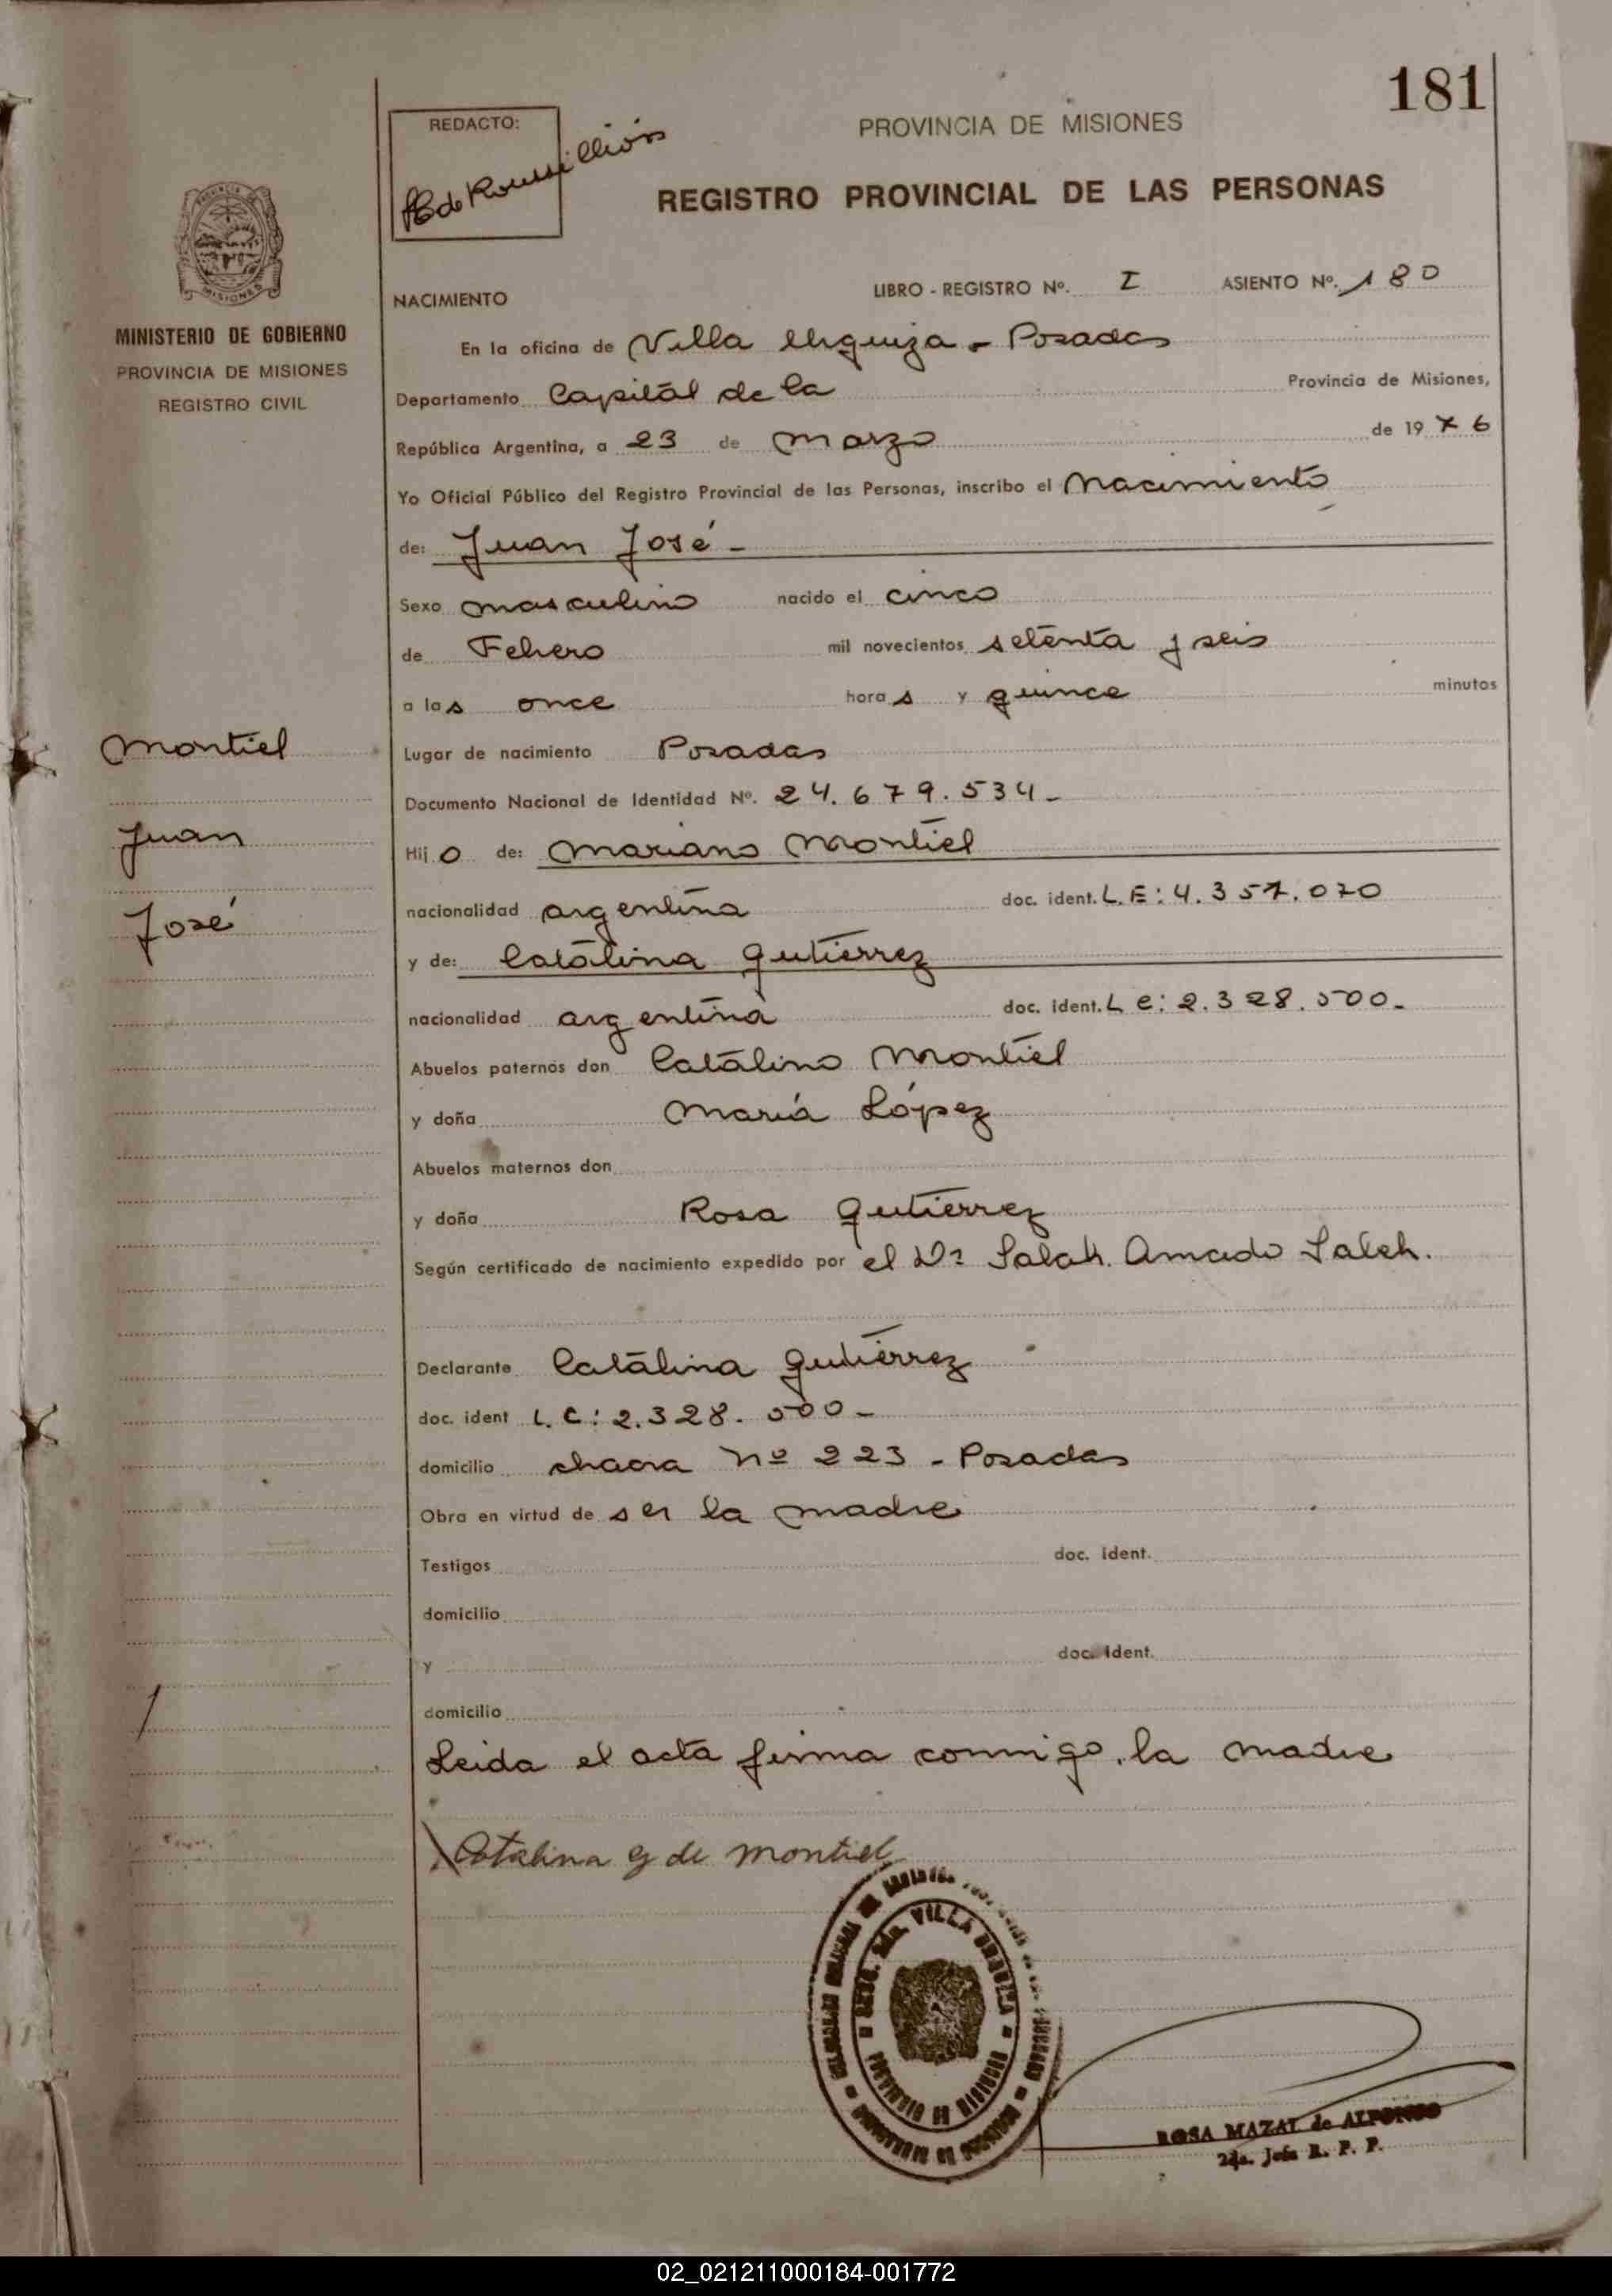 181
REDACTO:
PROVINCIA DE MISIONES
REGISTRO PROVINCIAL DE LAS PERSONAS
NACIMIENTO
LIBRO - REGISTRO Nº. I ASIENTO Nº. 180
MINISTERIO DE GOBIERNO
PROVINCIA DE MISIONES
REGISTRO CIVIL
En la oficina de Villa Urquiza - Posadas
Departamento Capital de la Provincia de Misiones,
República Argentina, a 23 de Marzo de 1976
Yo Oficial Público del Registro Provincial de las Personas, inscribo el Nacimiento
de: Juan José -
Sexo masculino nacido el cinco
de Febrero mil novecientos setenta y seis
a las once horas y quince minutos
Montiel
Juan
José
Lugar de nacimiento Posadas
Documento Nacional de Identidad Nº. 24.679.534-
Hijo de: Mariano Montiel
nacionalidad argentina doc. ident. L.E: 4.357.070
y de: Catalina Gutierrez
nacionalidad argentina doc. ident. L C: 2.328.500-
Abuelos paternos don Catalino Montiel
y doña María López
Abuelos maternos don
y doña Rosa Gutierrez
Según certificado de nacimiento expedido por el Dr Salah. Amado Saleh.
Declarante Catalina Gutierrez
doc. ident L.C: 2.328.500-
domicilio chacra Nº 223 - Posadas
Obra en virtud de ser la madre
Testigos doc. ident.
domicilio
y doc. ident.
domicilio
Leida el acta firma conmigo, la madre
Catalina G de Montiel
VILLA URQUIZA
PROVINCIA DE MISIONES
ROSA MAZAL de ALFONSO
2da. Jefa R. P. P.
02_021211000184-001772